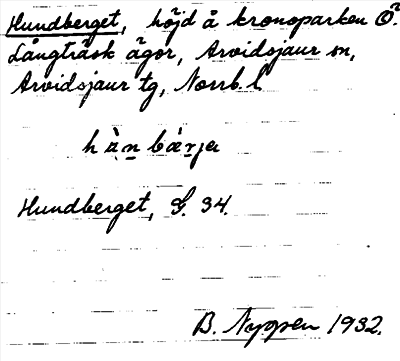 Hundberget, höjd å kronoparken Ö.
Långträsk ägor, Arvidsjaur sn,
Arvidsjaur tg, Norrb. l
hànbárja
Hundberget, G. 34.
B. Nygren 1932.